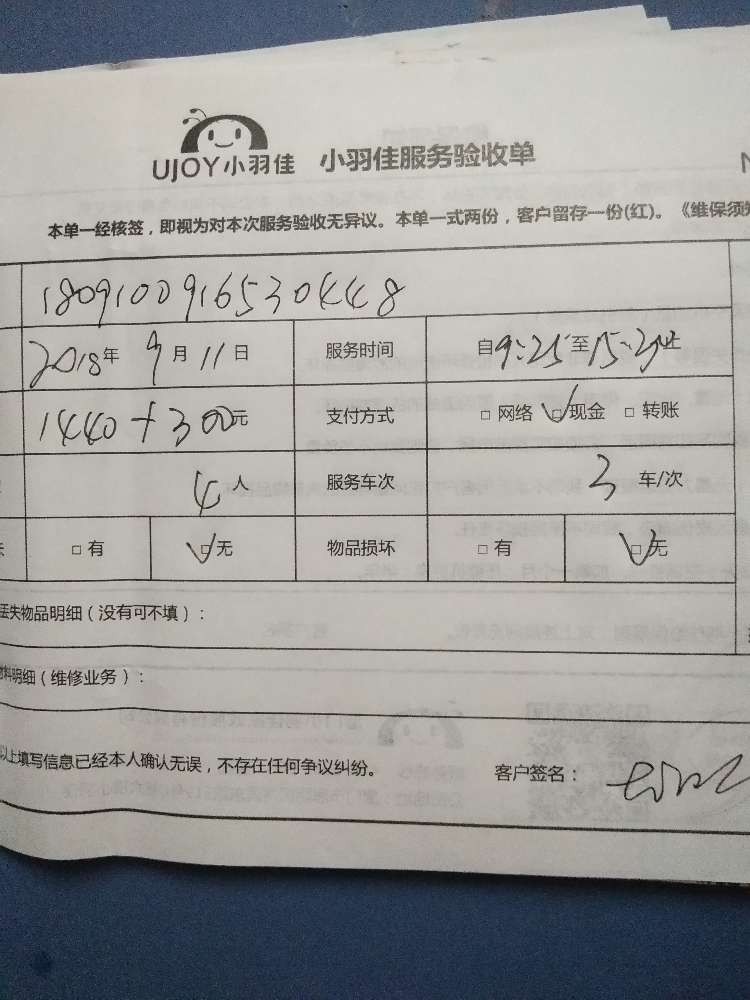 UJOY小羽佳 小羽佳服务验收单
本单一经核签，即视为对本次服务验收无异议。本单一式两份，客户留存一份(红)。《维保须
180910091653044８
2018年 9月 11日 服务时间 自9:25至15:
1440+300元 支付方式 □网络 ☑现金 □转账
4人 服务车次 3 车/次
□有 ☑无 物品损坏 □有 ☑无
丢失物品明细（没有可不填）：
料明细（维修业务）：
以上填写信息已经本人确认无误，不存在任何争议纠纷。 客户签名：